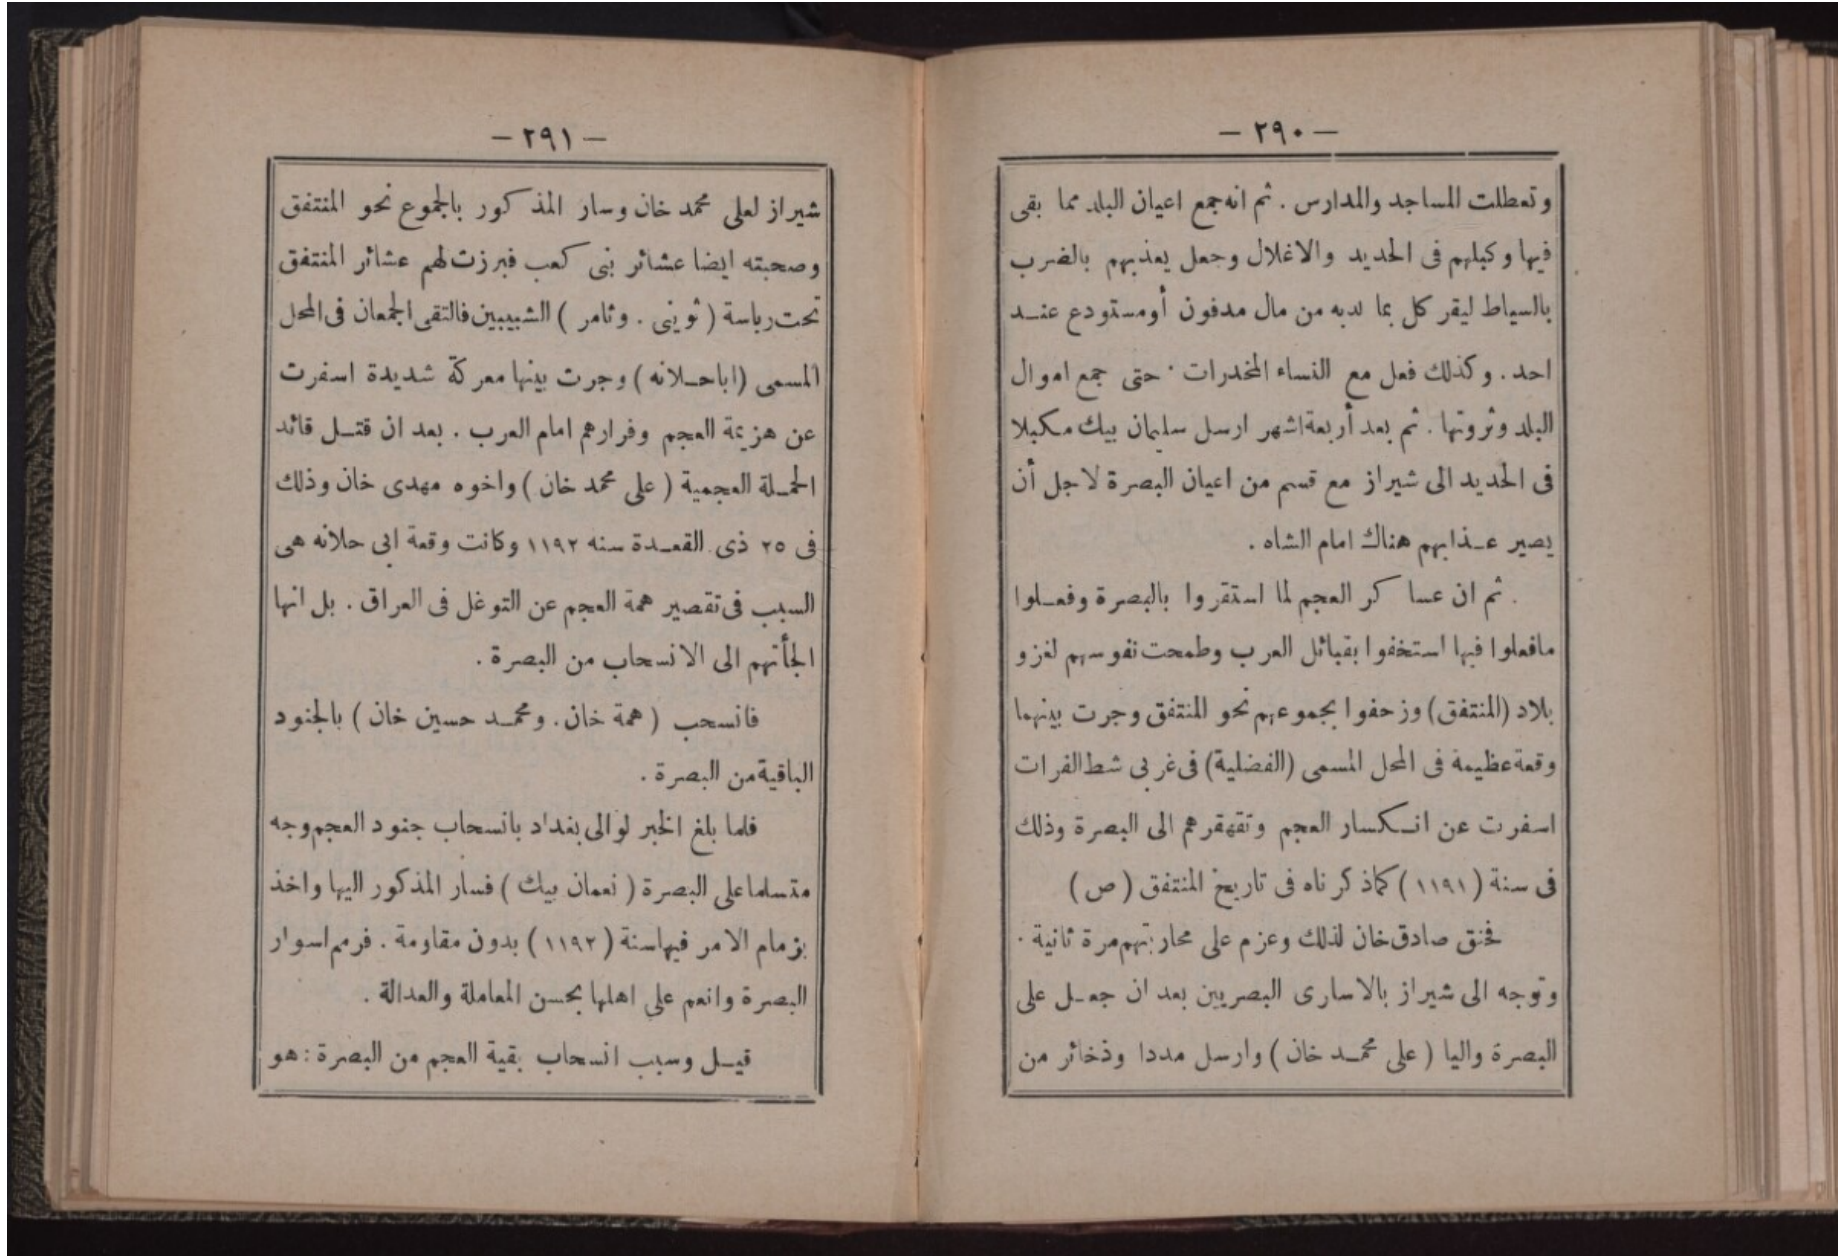 — ٢٩٠ —
وتعطلت المساجد والمدارس . ثم انه جمع اعيان البلد مما بقى
فيها وكبلهم فى الحديد والاغلال وجعل يعذبهم بالضرب
بالسياط ليقر كل بما لديه من مال مدفون أومستودع عند
احد . وكذلك فعل مع النساء المخدرات . حتى جمع اموال
البلد وثروتها . ثم بعد أربعة اشهر ارسل سليمان بيك مكبلا
فى الحديد الى شيراز مع قسم من اعيان البصرة لاجل أن
يصير عذابهم هناك امام الشاه .
. ثم ان عساكر العجم لما استقروا بالبصرة وفعلوا
مافعلوا فيها استخفوا بقبائل العرب وطمحت نفوسهم لغزو
بلاد (المنتفق) وزحفوا بجموعهم نحو المنتفق وجرت بينهما
وقعة عظيمة فى المحل المسمى (الفضلية) فى غربى شط الفرات
اسفرت عن انكسار العجم وتقهقرهم الى البصرة وذلك
فى سنة (١١٩١) كماذكرناه فى تاريخ المنتفق (ص)
فحنق صادق خان لذلك وعزم على محاربتهم مرة ثانية .
وتوجه الى شيراز بالاسارى البصريين بعد ان جعل على
البصرة واليا (على محمد خان) وارسل مددا وذخائر من
— ٢٩١ —
شيراز لعلى محمد خان وسار المذكور بالجموع نحو المنتفق
وصحبته ايضا عشائر بنى كعب فبرزت لهم عشائر المنتفق
تحت رياسة (ثوينى . وثامر) الشبيبين فالتقى الجمعان فى المحل
المسمى (اباحلانه) وجرت بينها معركة شديدة اسفرت
عن هزيمة العجم وفرارهم امام العرب . بعد ان قتل قائد
الحملة العجمية (على محمد خان) واخوه مهدى خان وذلك
فى ٢٥ ذى القعدة سنه ١١٩٢ وكانت وقعة ابى حلانه هى
السبب فى تقصير همة العجم عن التوغل فى العراق . بل انها
الجأتهم الى الانسحاب من البصرة .
فانسحب (همة خان . ومحمد حسين خان) بالجنود
الباقية من البصرة .
فلما بلغ الخبر لوالى بغداد بانسحاب جنود العجم وجه
متسلما على البصرة (نعمان بيك) فسار المذكور اليها واخذ
بزمام الامر فيها سنة (١١٩٢) بدون مقاومة . فرمم اسوار
البصرة وانعم على اهلها بحسن المعاملة والعدالة .
قيل وسبب انسحاب بقية العجم من البصرة : هو